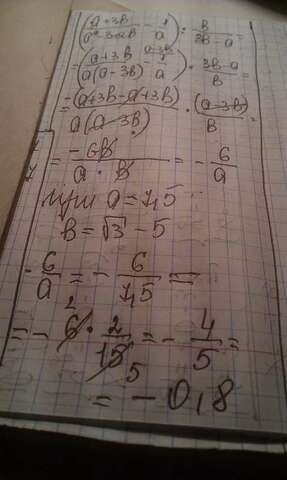 (a+3b / a²-3ab - 1/a) : b / 3b-a =
= (a+3b / a(a-3b) - a-3b 1/a) · 3b-a / b =
= -(a+3b-a+3b) / a(a-3b) · (a-3b) / b =
= -6b / a · b = - 6/a
при a = 7,5
b = √3 - 5
- 6/a = - 6/7,5 =
= - 6 2 · 2/15 5 = - 4/5 =
= - 0,8